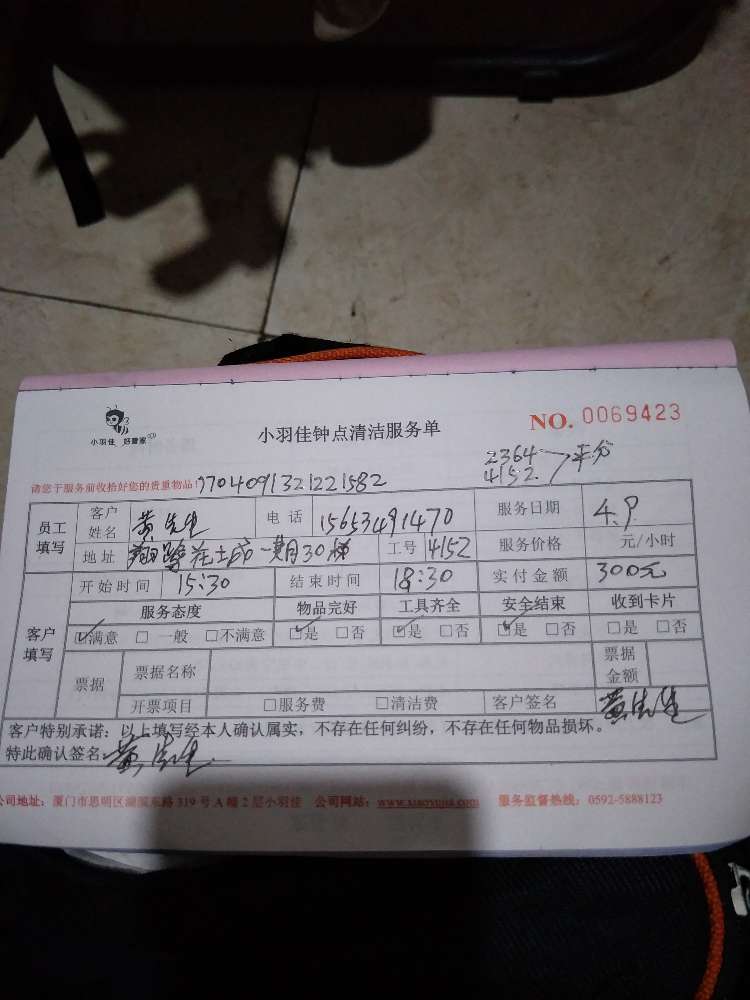 小羽佳 好管家
小羽佳钟点清洁服务单
NO. 0069423
2364
4152 平分
请您于服务前收拾好您的贵重物品!
7704091321221582
员工填写 客户姓名 黄先生 电话 15653491470 服务日期 4.9
地址 一期30梯 工号 4152 服务价格 元/小时
客户填写 开始时间 15:30 结束时间 18:30 实付金额 300元
服务态度 物品完好 工具齐全 安全结束 收到卡片
☑满意 □一般 □不满意 ☑是 □否 ☑是 □否 ☑是 □否 □是 □否
票据 票据名称 票据金额
开票项目 □服务费 □清洁费 客户签名 黄先生
客户特别承诺:以上填写经本人确认属实,不存在任何纠纷,不存在任何物品损坏。
特此确认签名: 黄先生
公司地址:厦门市思明区湖滨东路319号A幢2层小羽佳 公司网站:www.xiaoyujia.com 服务监督热线:0592-5888123